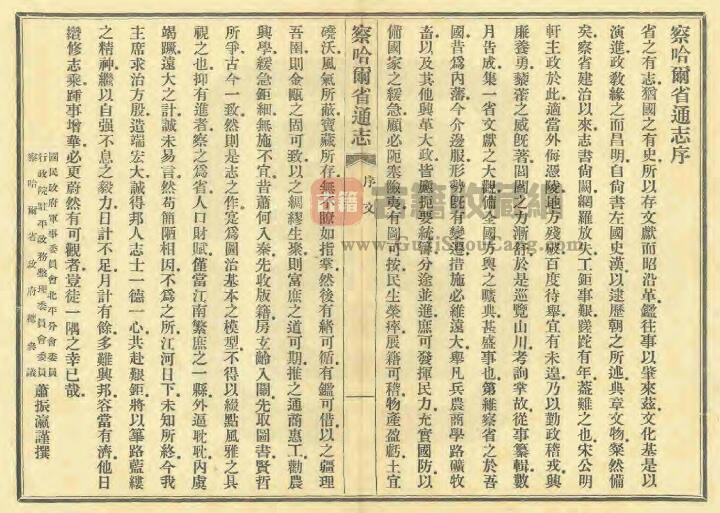 察哈爾省通志序
省之有志猶國之有史所以存文獻而昭沿革鑑往事以肇來茲文化基是以
演進政教緣之而昌明自尚書左國史漢以逮歷朝之所述典章文物粲然備
矣察省建治以來志書尚闕網羅放失工鉅事艱蹉跎有年蓋難之也宋公明
軒主政於此適當外侮憑陵地方殘破百度待舉宜有未遑乃以勤政稽戎興
廉養勇藜莠之威旣著閭閻之力漸紓於是巡覽山川考詢掌故從事纂輯數
月告成集一省文獻之大觀備全國方輿之曠典甚盛事也第維察省之於吾
國昔爲內藩今介邊服形勢旣有變遷措施必維遠大舉凡兵農商學路礦牧
畜以及其他興革大政皆應扼要統籌分途並進庶可發揮民力充實國防以
備國家之緩急顧必阨塞險夷有圖可按民生榮瘁展籍可稽物產盈虧土宜
察哈爾省通志
序文
一
磽沃風氣所蔽寶藏所存無不瞭如指掌然後有緒可循有鑑可借以之疆理
吾圉則金甌之固可致以之綢繆生聚則富庶之道可期推之通商惠工勸農
興學緩急鉅細無施不宜昔蕭何入秦先收版籍房玄齡入關先取圖書賢哲
所爭古今一致然則是志之作寔爲圖治基本之模型不得以綴點風雅之具
視之也抑有進者察之爲省人口財賦僅當江南繁庶之一縣外逼耽耽內虞
竭蹶遠大之計誠未易言然苟簡陋相因不爲之所江河日下未知所終今我
主席求治方殷造端宏大誠得邦人志士一德一心共赴艱鉅將以篳路藍縷
之精神繼以自强不息之毅力日計不足月計有餘多難興邦容當有濟他日
纘修志乘踵事增華必更蔚然有可觀者豈徒一隅之幸已哉
國民政府軍事委員會北平分會委員
行政院駐平政務整理委員會委員
察哈爾省政府總參議
蕭振瀛謹撰
古籍
古籍收藏網
www.GujiShouCang.com